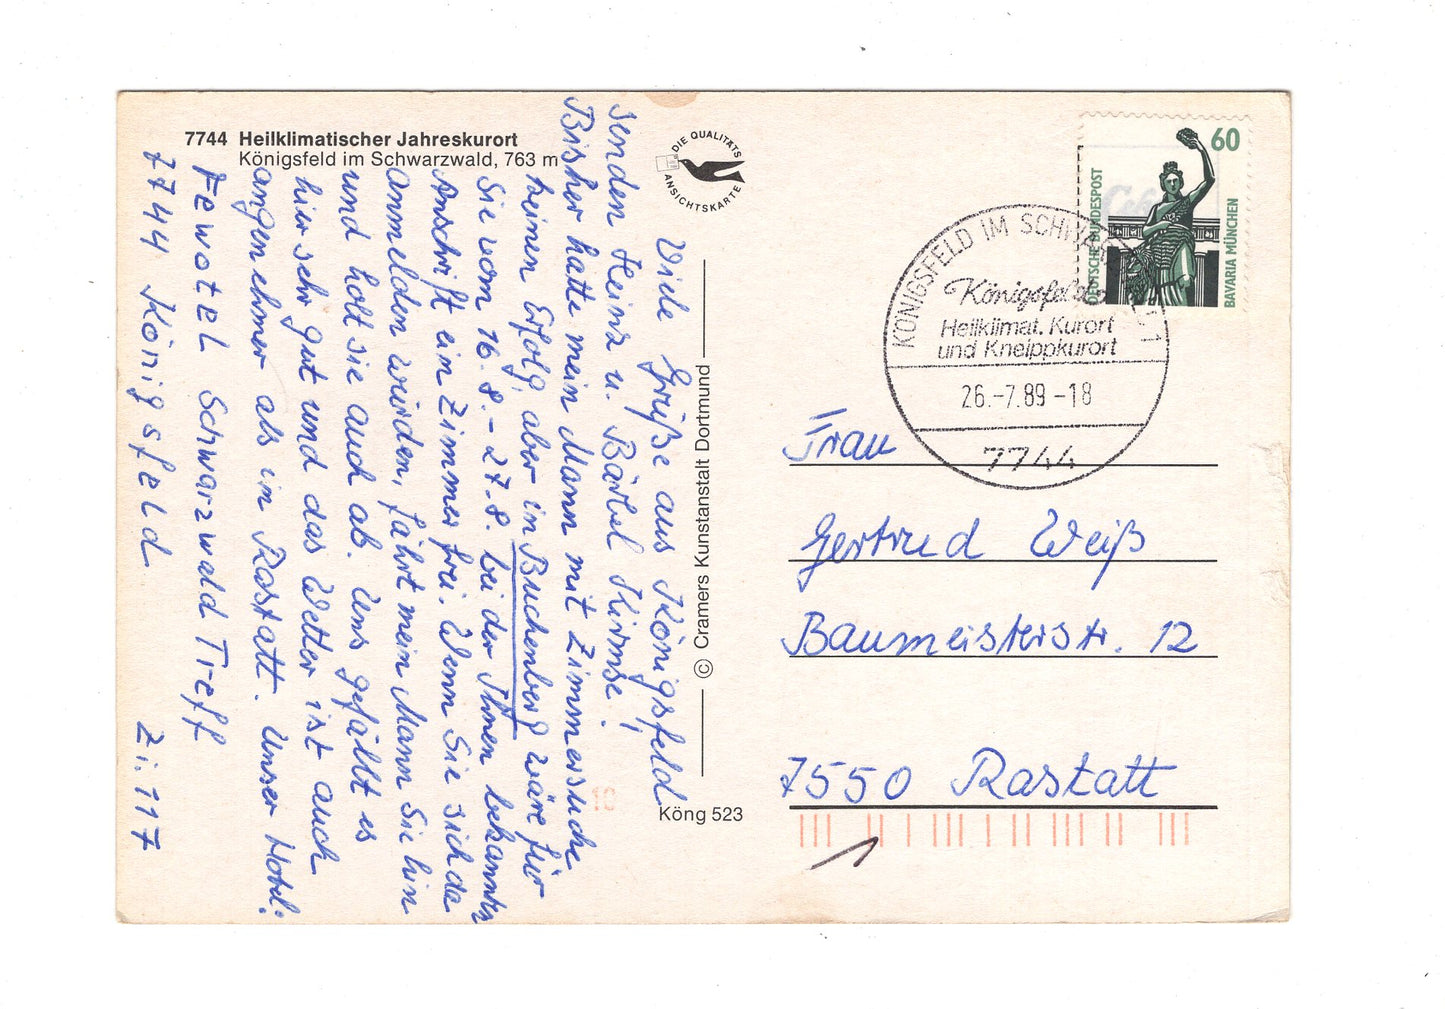 7744 Heilklimatischer Jahreskurort
Königsfeld im Schwarzwald, 763 m
DIE QUALITÄTS
ANSICHTSKARTE
Viele Grüße aus Königsfeld
senden Heinz u. Bärbel Kirmse!
Bisher hatte mein Mann mit Zimmersuche
keinen Erfolg, aber in Buchenberg wäre für
Sie vom 16.8.-27.8. bei der Ihnen bekannten
Anschrift ein Zimmer frei. Wenn Sie sich da
anmelden würden, fährt mein Mann Sie hin
und holt sie auch ab. Uns gefällt es
hier sehr gut und das Wetter ist auch
angenehmer als in Rastatt. Unser Hotel:
Fewotel Schwarzwald Treff
7744 Königsfeld Zi. 117
© Cramers Kunstanstalt Dortmund
Köng 523
10
60
DEUTSCHE BUNDESPOST
BAVARIA MÜNCHEN
KÖNIGSFELD IM SCHWARZWALD 1
Königsfeld
Heilklimat. Kurort
und Kneippkurort
26.-7.89-18
7744
Frau
Gertrud Weiß
Baumeisterstr. 12
7550 Rastatt